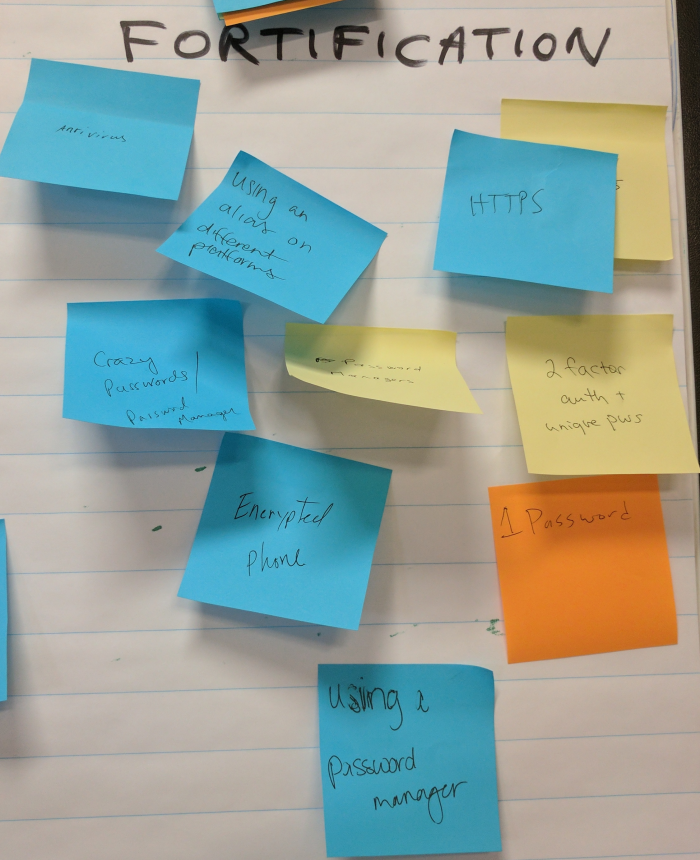 FORTIFICATION
Antivirus
using an
alias on
different
platforms
HTTPS
S
Crazy
Passwords/
Password Manager
Password
Managers
2 factor
auth +
unique pws
Encrypted
phone
1 Password
using a
password
manager